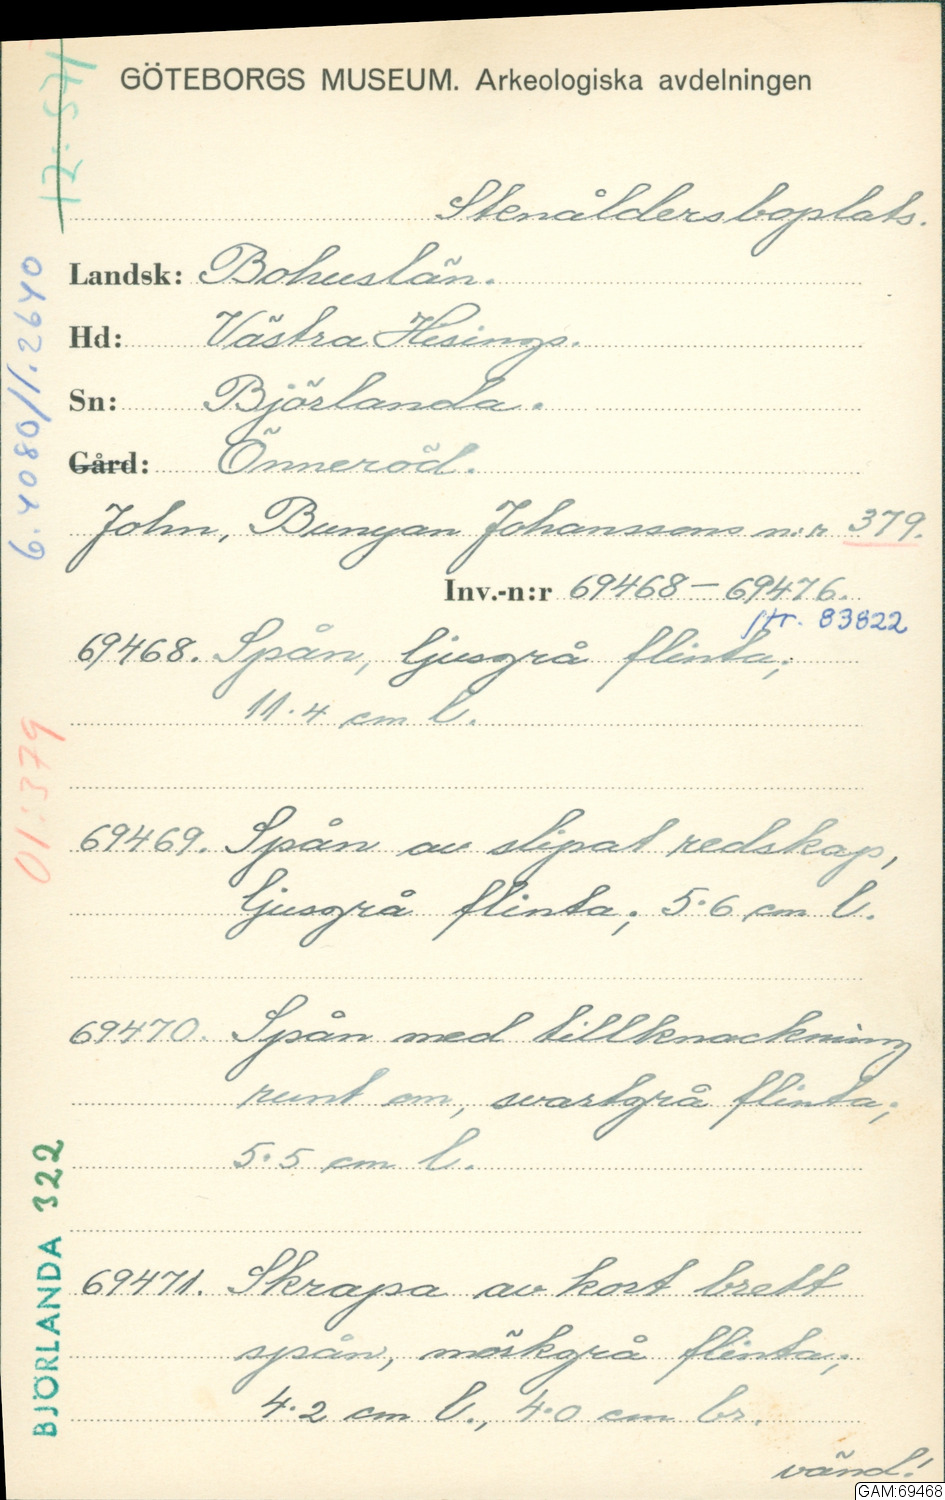 GÖTEBORGS MUSEUM. Arkeologiska avdelningen
Stenåldersboplats.
Landsk: Bohuslän.
Hd: Västra Hisings.
Sn: Björlanda.
Gård: Önneröd.
John, Bunyan Johanssons n:r 379.
Inv.-n:r 69468 — 69476.
str. 83822
69468. Spån, ljusgrå flinta;
11.4 cm l.
69469. Spån av slipat redskap,
ljusgrå flinta; 5.6 cm l.
69470. Spån med tillknackning
runt om, svartgrå flinta;
5.5 cm l.
69471. Skrapa av kort brett
spån, mörkgrå flinta;
4.2 cm l., 4.0 cm br.
vänd!
6.4080/1.2640
01:379
BJÖRLANDA 322
GAM:69468